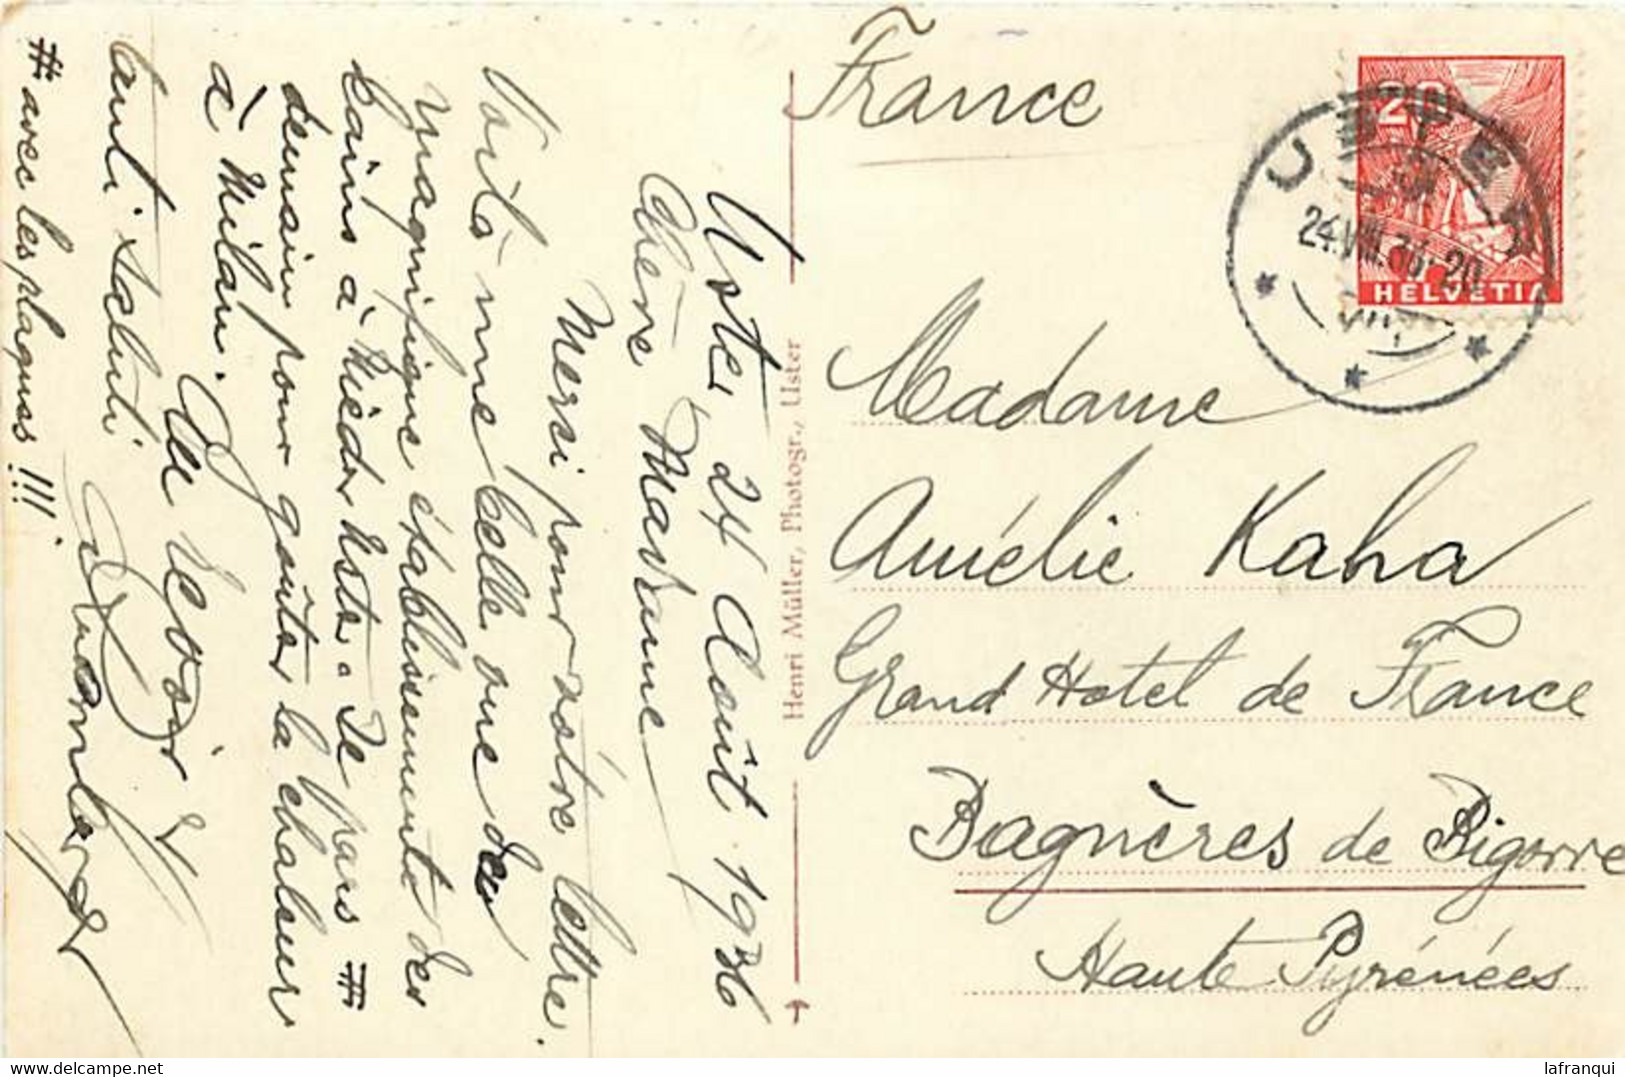 Uster, 24 Août 1936
Chère Madame
Merci pour vôtre lettre.
Voilà une belle vue du
magnifique établissement des
bains à Nieder Uster. Je pars #
demain pour goûter la chaleur
à Milan. Au revoir &
tanti saluti
# avec les plaques !!!
France
Madame
Amélie Kaha
Grand Hotel de France
Bagnères de Bigorre
Haute Pyrénées
Henri Müller, Photogr., Uster
20
HELVETIA
USTER
24.VIII.36. 20
lafranqui
delcampe.net